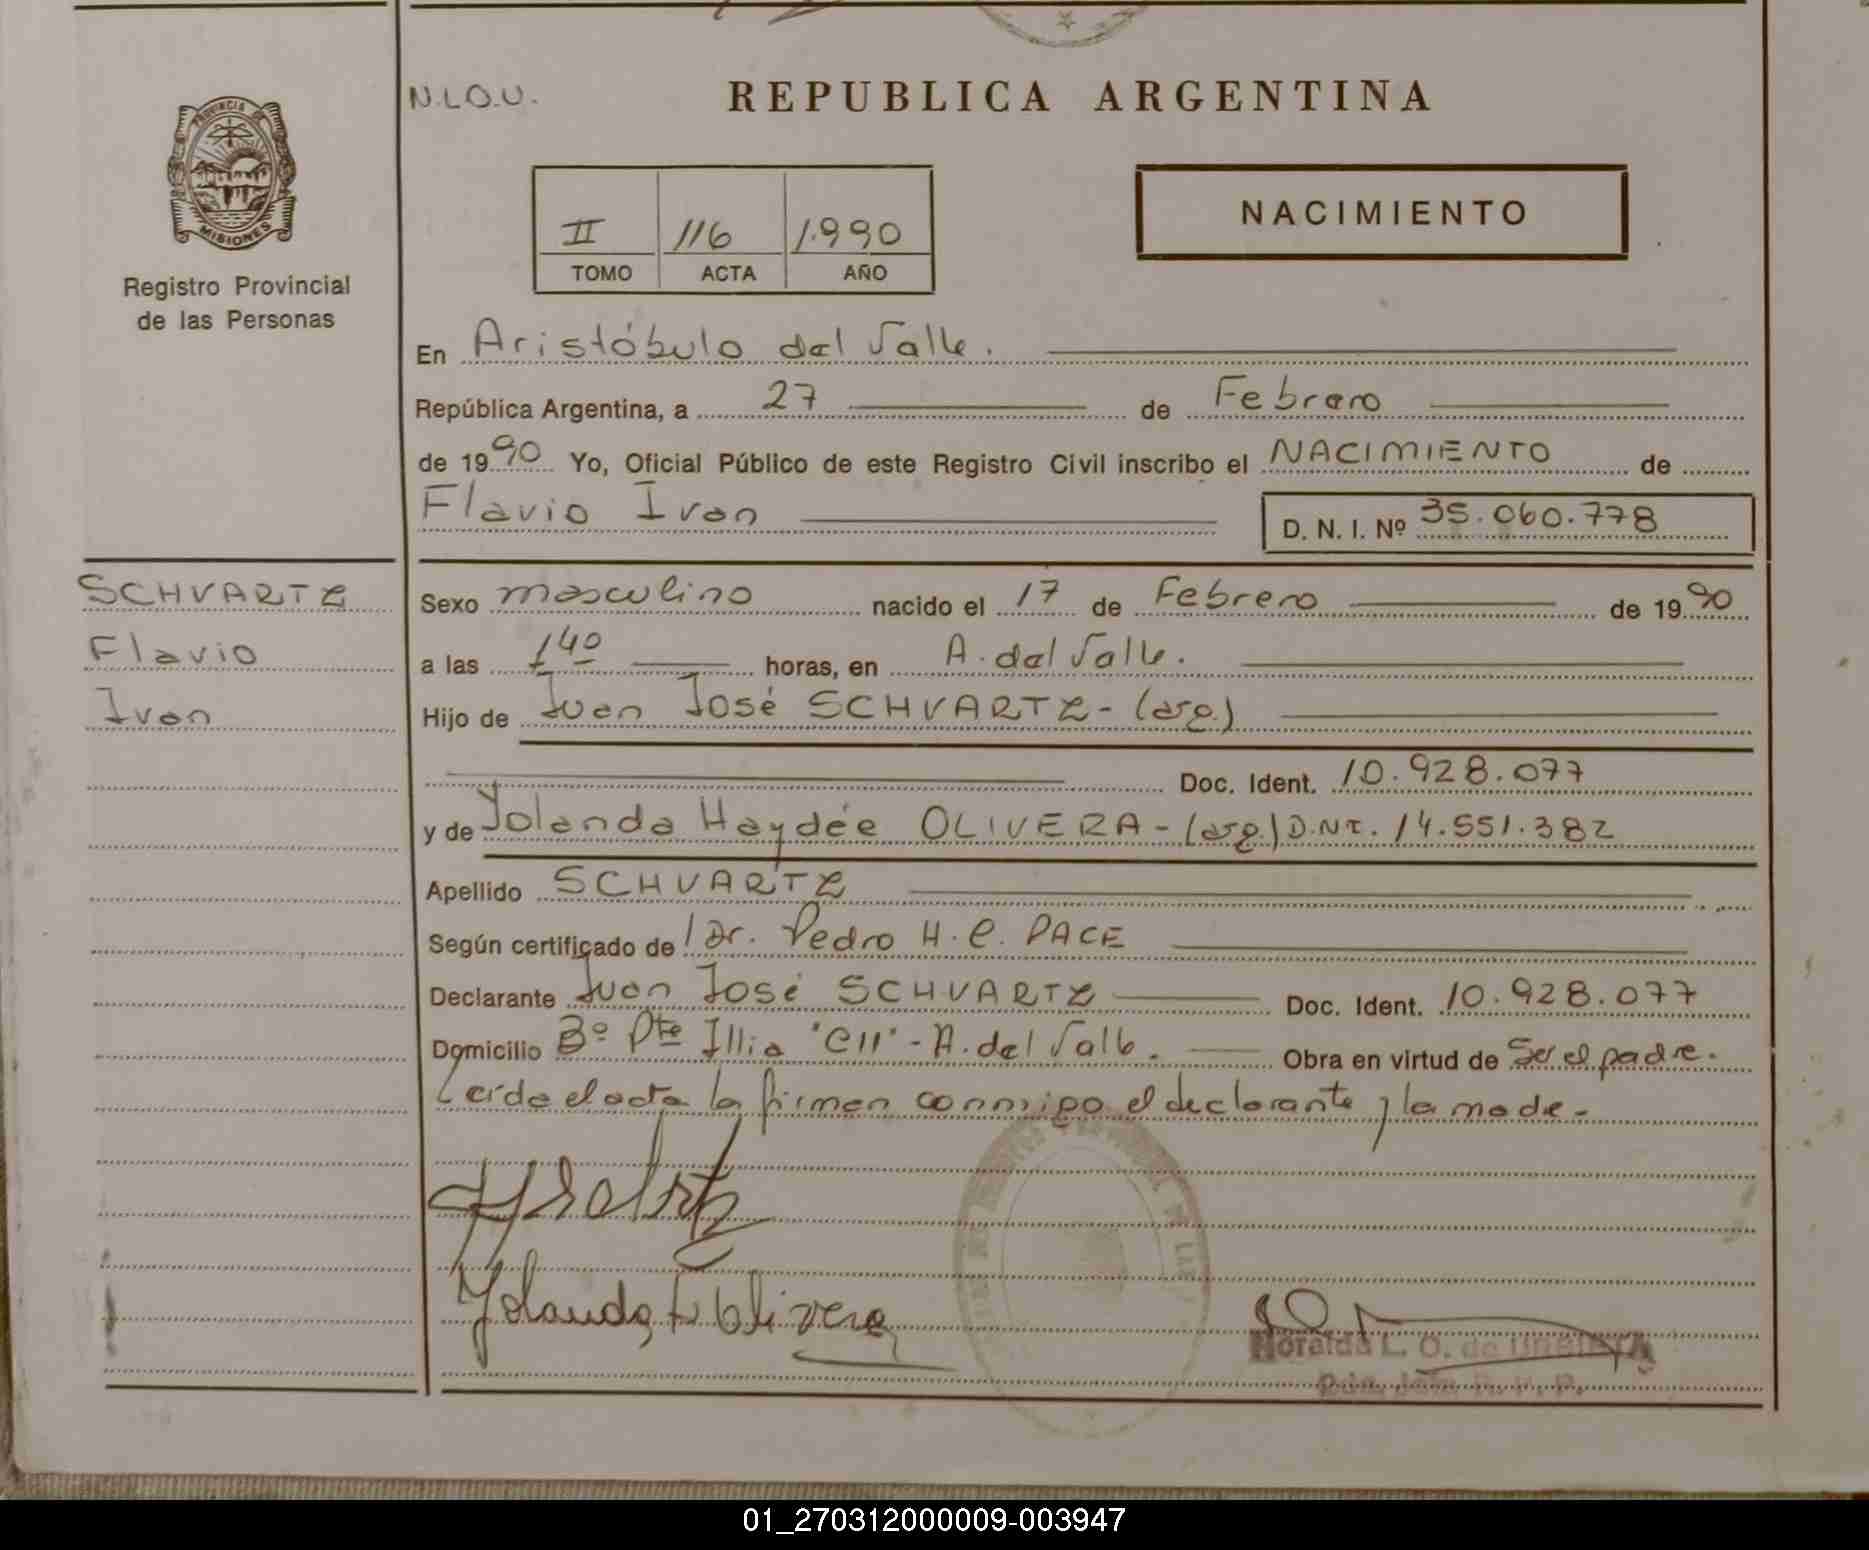 N.L.O.U.
REPUBLICA ARGENTINA
PROVINCIA DE
MISIONES
Registro Provincial
de las Personas
II 116 1.990
TOMO ACTA AÑO
NACIMIENTO
En Aristóbulo del Valle.
República Argentina, a 27 de Febrero
de 1990 Yo, Oficial Público de este Registro Civil inscribo el NACIMIENTO de
Flavio Ivan
D. N. I. Nº 35.060.778
SCHVARTZ
Flavio
Ivan
Sexo masculino nacido el 17 de Febrero de 1990
a las 1 40 horas, en A. del Valle.
Hijo de Juan José SCHVARTZ - (arg.)
Doc. Ident. 10.928.077
y de Yolanda Haydée OLIVERA - (arg.) D.N.I. 14.551.382
Apellido SCHVARTZ
Según certificado de Dr. Pedro H. C. PACE
Declarante Juan José SCHVARTZ Doc. Ident. 10.928.077
Domicilio Bº Pte Illia "C11" - A. del Valle. Obra en virtud de Ser el padre.
Leída el acta la firman conmigo el declarante y la madre -
Yolanda H Olivera
Noralda L. O. de URBIETA
01_270312000009-003947